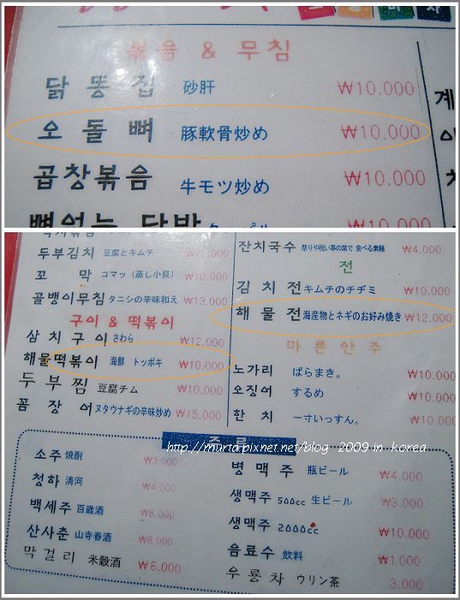 볶음 & 무침
닭똥집 砂肝 ₩10.000
오돌뼈 豚軟骨炒め ₩10.000
곱창볶음 牛モツ炒め ₩10.000
두부김치 豆腐とキムチ ₩10.000
꼬막 コマッ(蒸し小貝) ₩10.000
골뱅이무침 タニシの辛味和え ₩13.000
구이 & 떡볶이
삼치구이 さわら ₩12.000
해물떡볶이 海鮮 トッポキ ₩10.000
두부찜 豆腐チム ₩10.000
꼼장어 ヌタウナギの辛味炒め ₩15.000
잔치국수 祭りや祝い事の席で 食べる素麺 ₩4.000
전
김치전 キムチのチヂミ ₩10.000
해물전 海産物とネギのお好み焼き ₩12,000
마른안주
노가리 ばらまき。 ₩10.000
오징어 するめ ₩10.000
한치 一寸いっすん。 ₩10.000
주류
http://muria.pixnet.net/blog 2009 in korea
소주 焼酎 ₩3.000
청하 清河 ₩4.000
백세주 百歳酒 ₩8.000
산사춘 山寺春酒 ₩8.000
막걸리 米穀酒 ₩6.000
병맥주 瓶ビール ₩4.000
생맥주 500cc 生ビール ₩3.000
생맥주 2000cc ₩10.000
음료수 飲料 ₩1.000
우롱차 ウリン茶 3.000